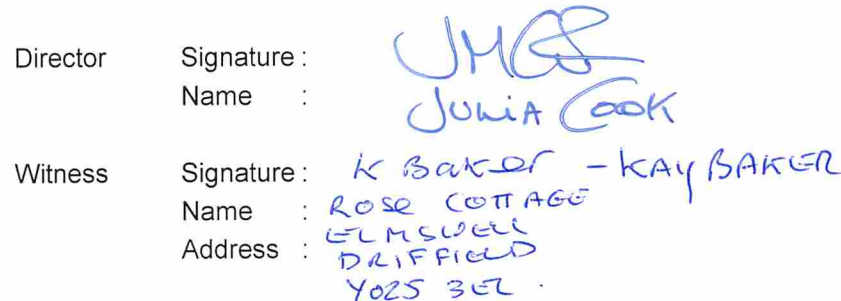 Director Signature : JMCS
Name : JULIA COOK
Witness Signature : K Baker - KAY BAKER
Name : ROSE COTTAGE
Address : ELMSWELL
DRIFFIELD
YO25 3EL .